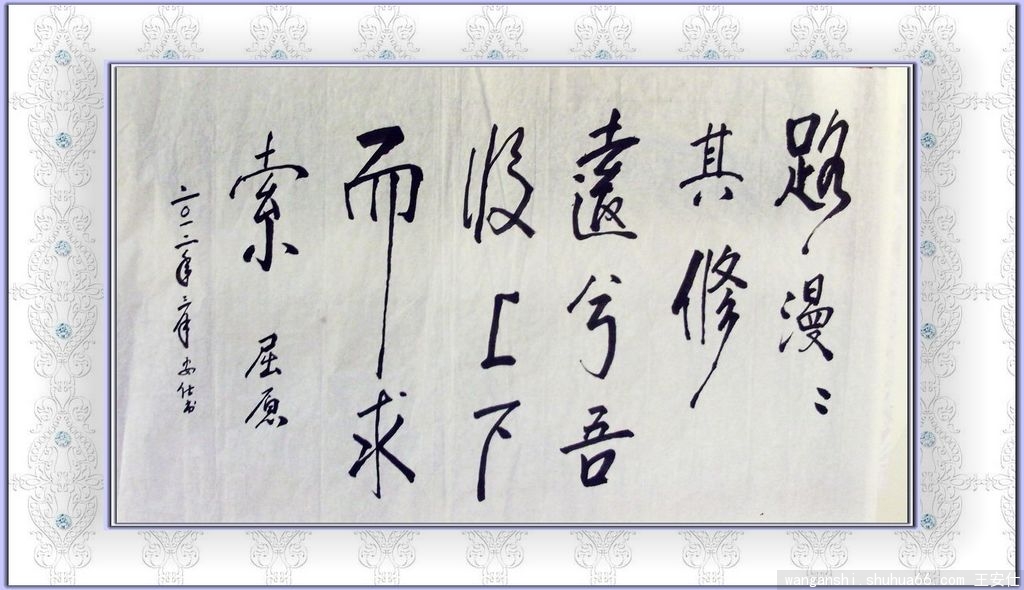 路漫々
其修
遠兮吾
将上下
而求
索 屈原
二〇一二年三月 安仕书
wanganshi shuhua66.com 王安仕